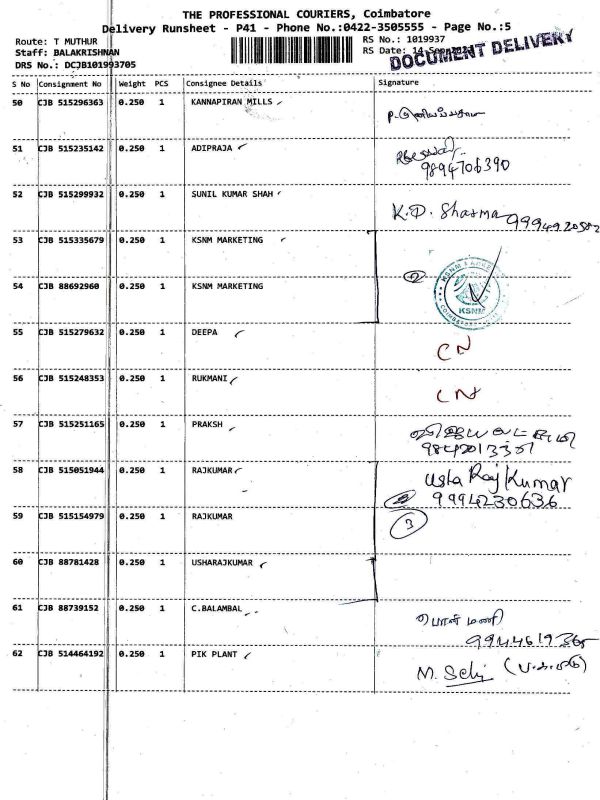 THE PROFESSIONAL COURIERS, Coimbatore
Delivery Runsheet - P41 - Phone No.:0422-3505555 - Page No.:5
Route: T MUTHUR
RS No.: 1019937
Staff: BALAKRISHNAN
RS Date: 14
DOCUMENT DELIVERY
DRS No.: DCJB101993705
S No Consignment No Weight PCS Consignee Details Signature
50 CJB 515296363 0.250 1 KANNAPIRAN MILLS
51 CJB 515235142 0.250 1 ADIPRAJA
9894706390
52 CJB 515299932 0.250 1 SUNIL KUMAR SHAH K.D. Sharma
53 CJB 515335679 0.250 1 KSNM MARKETING
54 CJB 88692960 0.250 1 KSNM MARKETING 2 KSNM
55 CJB 515279632 0.250 1 DEEPA CN
56 CJB 515248353 0.250 1 RUKMANI CN
57 CJB 515251165 0.250 1 PRAKSH
58 CJB 515051944 0.250 1 RAJKUMAR Usha Raj Kumar
9994230636
59 CJB 515154979 0.250 1 RAJKUMAR 3
60 CJB 88781428 0.250 1 USHARAJKUMAR
61 CJB 88739152 0.250 1 C.BALAMBAL பொன் மணி
62 CJB 514464192 0.250 1 PIK PLANT M. Selvi